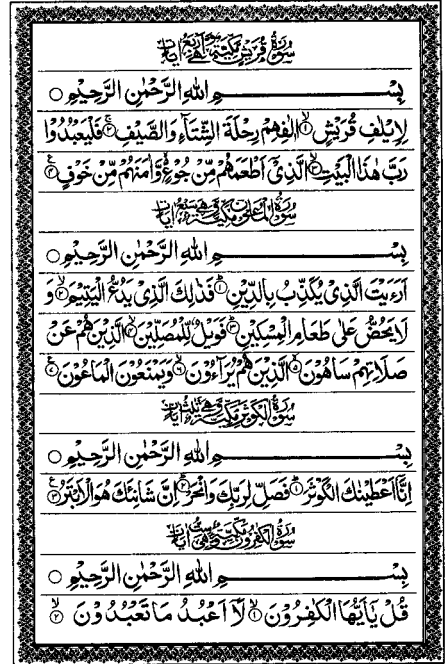 سُوْرَةُ قُرَيْشٍ مَكِّيَّةٌ وَّهِيَ اَرْبَعُ اٰيَاتٍ
بِسْمِ اللهِ الرَّحْمٰنِ الرَّحِيْمِ ○
لِاِيْلٰفِ قُرَيْشٍ ۙ﴿۱﴾ اٖلٰفِهِمْ رِحْلَةَ الشِّتَآءِ وَالصَّيْفِ ۚ﴿۲﴾ فَلْيَعْبُدُوْا
رَبَّ هٰذَا الْبَيْتِ ۙ﴿۳﴾ الَّذِيْٓ اَطْعَمَهُمْ مِّنْ جُوْعٍ ۙ وَّاٰمَنَهُمْ مِّنْ خَوْفٍ ﴿۴﴾
سُوْرَةُ الْمَاعُوْنِ مَكِّيَّةٌ وَّهِيَ سَبْعُ اٰيَاتٍ
بِسْمِ اللهِ الرَّحْمٰنِ الرَّحِيْمِ ○
اَرَءَيْتَ الَّذِيْ يُكَذِّبُ بِالدِّيْنِ ﴿۱﴾ فَذٰلِكَ الَّذِيْ يَدُعُّ الْيَتِيْمَ ۙ﴿۲﴾ وَ
لَا يَحُضُّ عَلٰى طَعَامِ الْمِسْكِيْنِ ﴿۳﴾ فَوَيْلٌ لِّلْمُصَلِّيْنَ ۙ﴿۴﴾ الَّذِيْنَ هُمْ عَنْ
صَلَاتِهِمْ سَاهُوْنَ ۙ﴿۵﴾ الَّذِيْنَ هُمْ يُرَآءُوْنَ ۙ﴿۶﴾ وَيَمْنَعُوْنَ الْمَاعُوْنَ ﴿۷﴾
سُوْرَةُ الْكَوْثَرِ مَكِّيَّةٌ وَّهِيَ ثَلٰثُ اٰيَاتٍ
بِسْمِ اللهِ الرَّحْمٰنِ الرَّحِيْمِ ○
اِنَّآ اَعْطَيْنٰكَ الْكَوْثَرَ ﴿۱﴾ فَصَلِّ لِرَبِّكَ وَانْحَرْ ﴿۲﴾ اِنَّ شَانِئَكَ هُوَ الْاَبْتَرُ ﴿۳﴾
سُوْرَةُ الْكٰفِرُوْنَ مَكِّيَّةٌ وَّهِيَ سِتُّ اٰيَاتٍ
بِسْمِ اللهِ الرَّحْمٰنِ الرَّحِيْمِ ○
قُلْ يٰٓاَيُّهَا الْكٰفِرُوْنَ ۙ﴿۱﴾ لَآ اَعْبُدُ مَا تَعْبُدُوْنَ ۙ﴿۲﴾